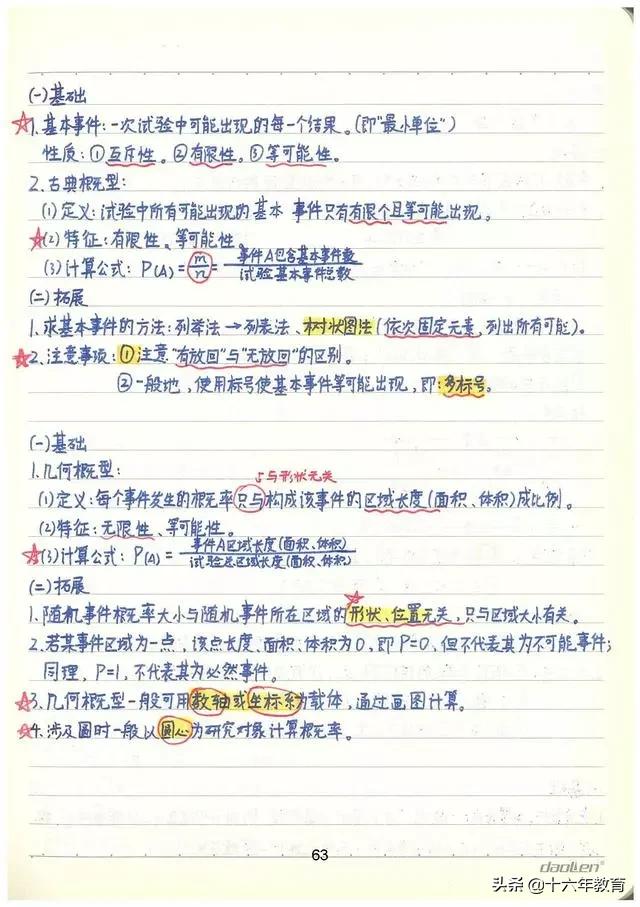 (一)基础
1.基本事件:一次试验中可能出现的每一个结果。(即"最小单位")
性质:①互斥性。②有限性。③等可能性。
2.古典概型:
(1)定义:试验中所有可能出现的基本 事件只有有限个且等可能出现。
(2)特征:有限性、等可能性。
(3)计算公式:P(A)=m/n=事件A包含基本事件数/试验基本事件总数
(二)拓展
1.求基本事件的方法:列举法→列表法、树状图法(依次固定元素,列出所有可能)。
2.注意事项:①注意"有放回"与"无放回"的区别。
②一般地,使用标号使基本事件等可能出现,即:多标号。
(一)基础
1.几何概型:
与形状无关
(1)定义:每个事件发生的概率只与构成该事件的区域长度(面积、体积)成比例。
(2)特征:无限性、等可能性。
(3)计算公式:P(A)=事件A区域长度(面积、体积)/试验总区域长度(面积、体积)
(二)拓展
1.随机事件概率大小与随机事件所在区域的形状、位置无关,只与区域大小有关。
2.若某事件区域为一点,该点长度、面积、体积为0,即P=0,但不代表其为不可能事件;
同理,P=1,不代表其为必然事件。
3.几何概型一般可用数轴或坐标系为载体,通过画图计算。
4.涉及圆时一般以圆心为研究对象计算概率。
63
daolen
头条 @十六年教育